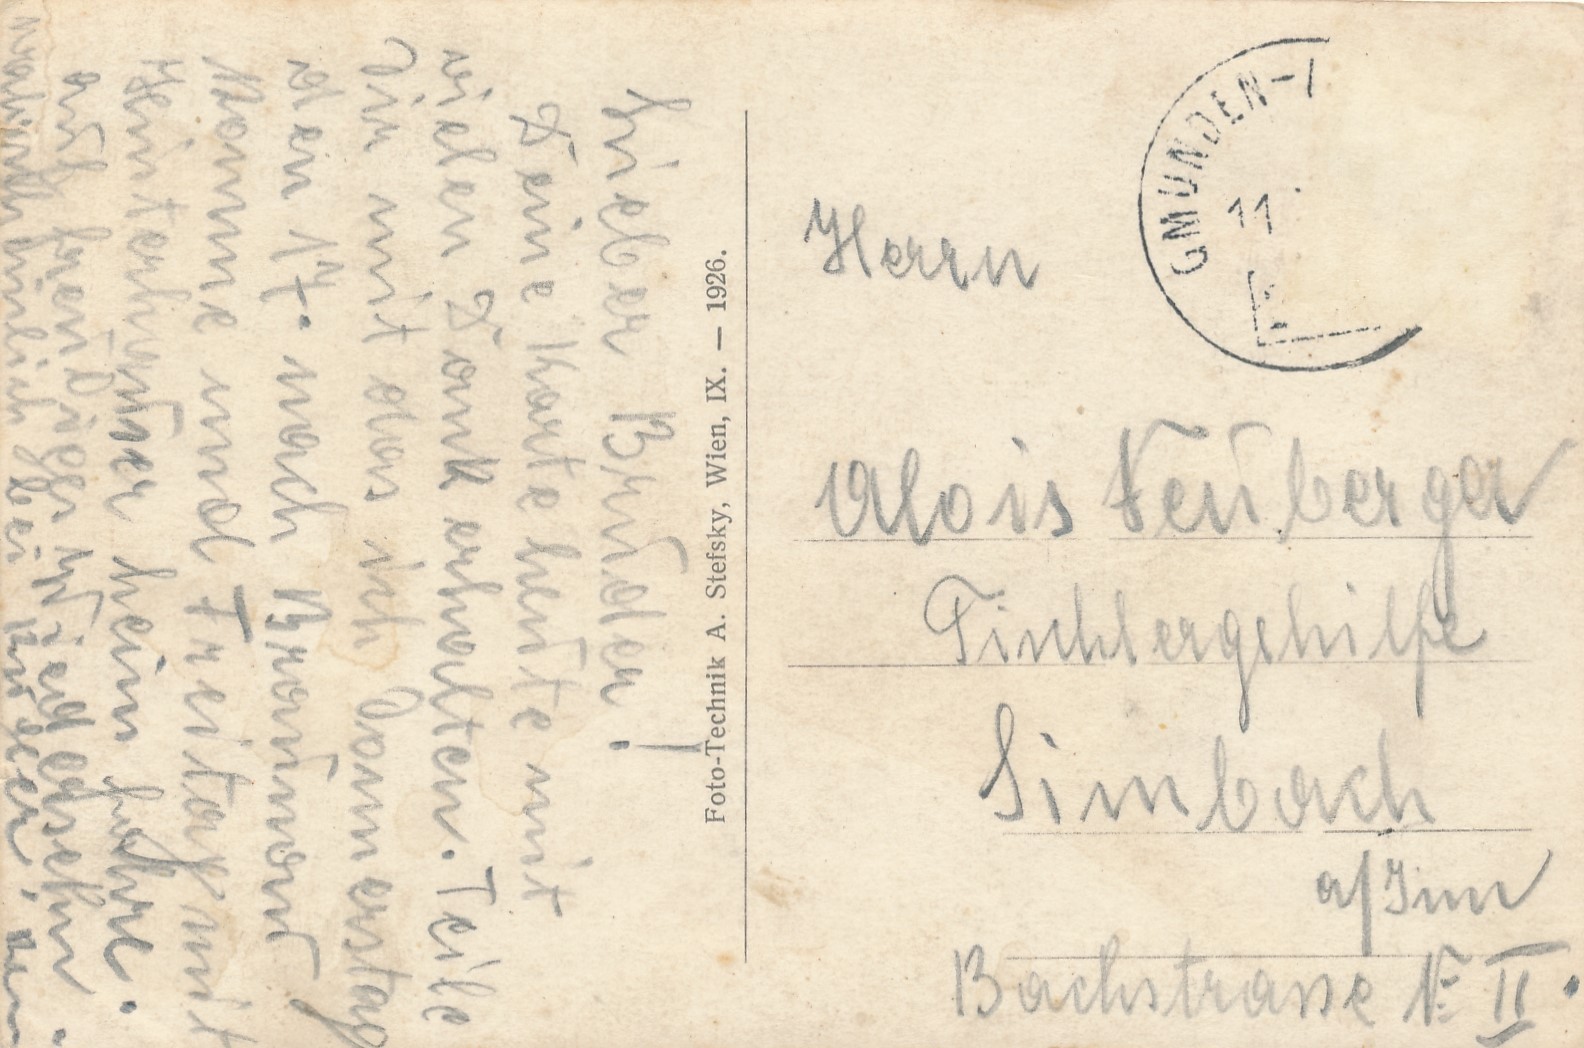 Lieber Bruder!
Deine Karte heute mit
vielen Dank erhalten. Teile
dir mit das ich Donnerstag
den 17. nach Braunau
komme und Freitag mit
Hintenhauser heim fahre.
auf freudiges Wiedersehn.
dein Bruder
Foto-Technik A. Stefsky, Wien, IX. — 1926.
GMUNDEN-1
11
Herrn
Alois Feuberger
Tischlergehilfe
Simbach
a/Inn
Bachstrasse № II.